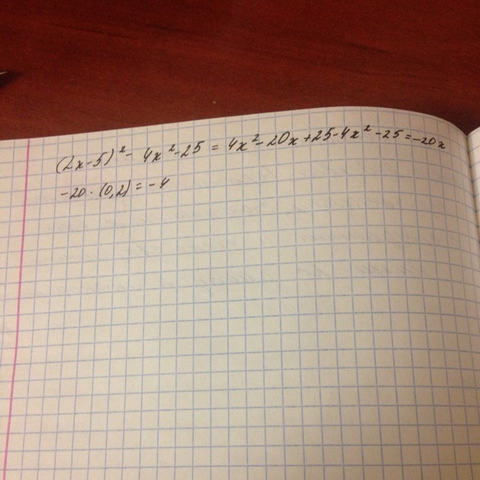 (2x-5)² - 4x²-25 = 4x²-20x+25-4x²-25=-20x
-20 · (0,2) = -4